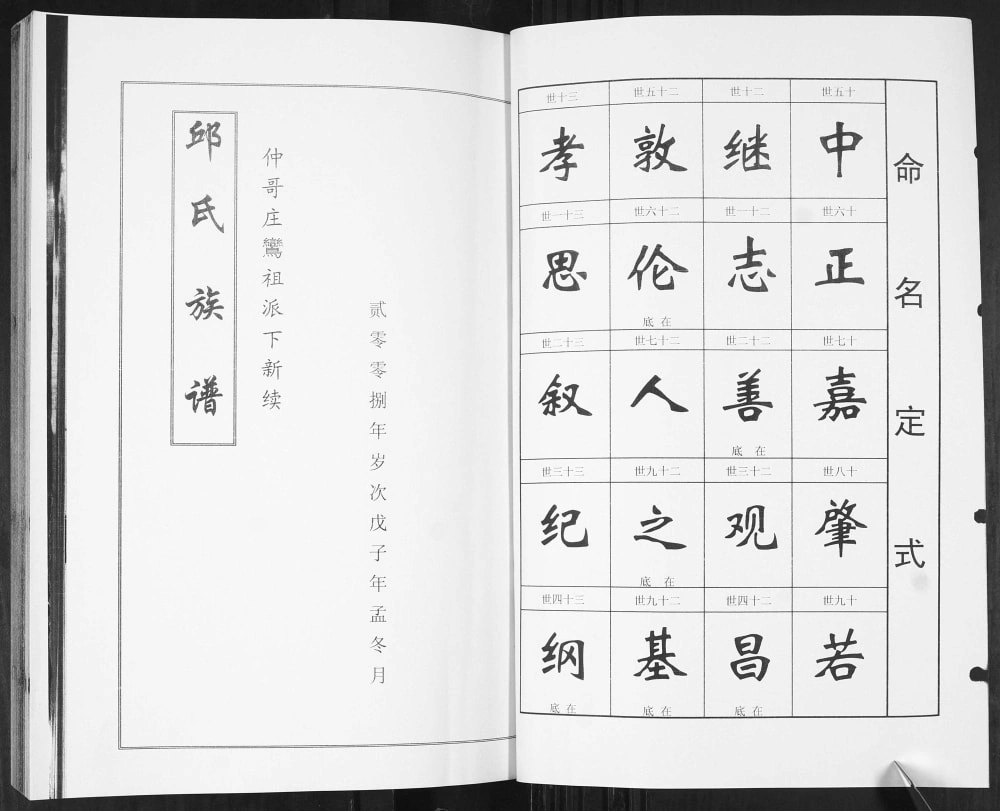 命名定式
十五世
中
十六世
正
十七世
嘉
十八世
肇
十九世
若
二十世
继
二十一世
志
二十二世
善
在底
二十三世
观
二十四世
昌
在底
二十五世
敦
二十六世
伦
在底
二十七世
人
二十九世
之
在底
二十九世
基
在底
三十世
孝
三十一世
思
三十二世
叙
三十三世
纪
三十四世
纲
在底
贰零零捌年岁次戊子年孟冬月
仲哥庄鸞祖派下新续
邱氏族谱